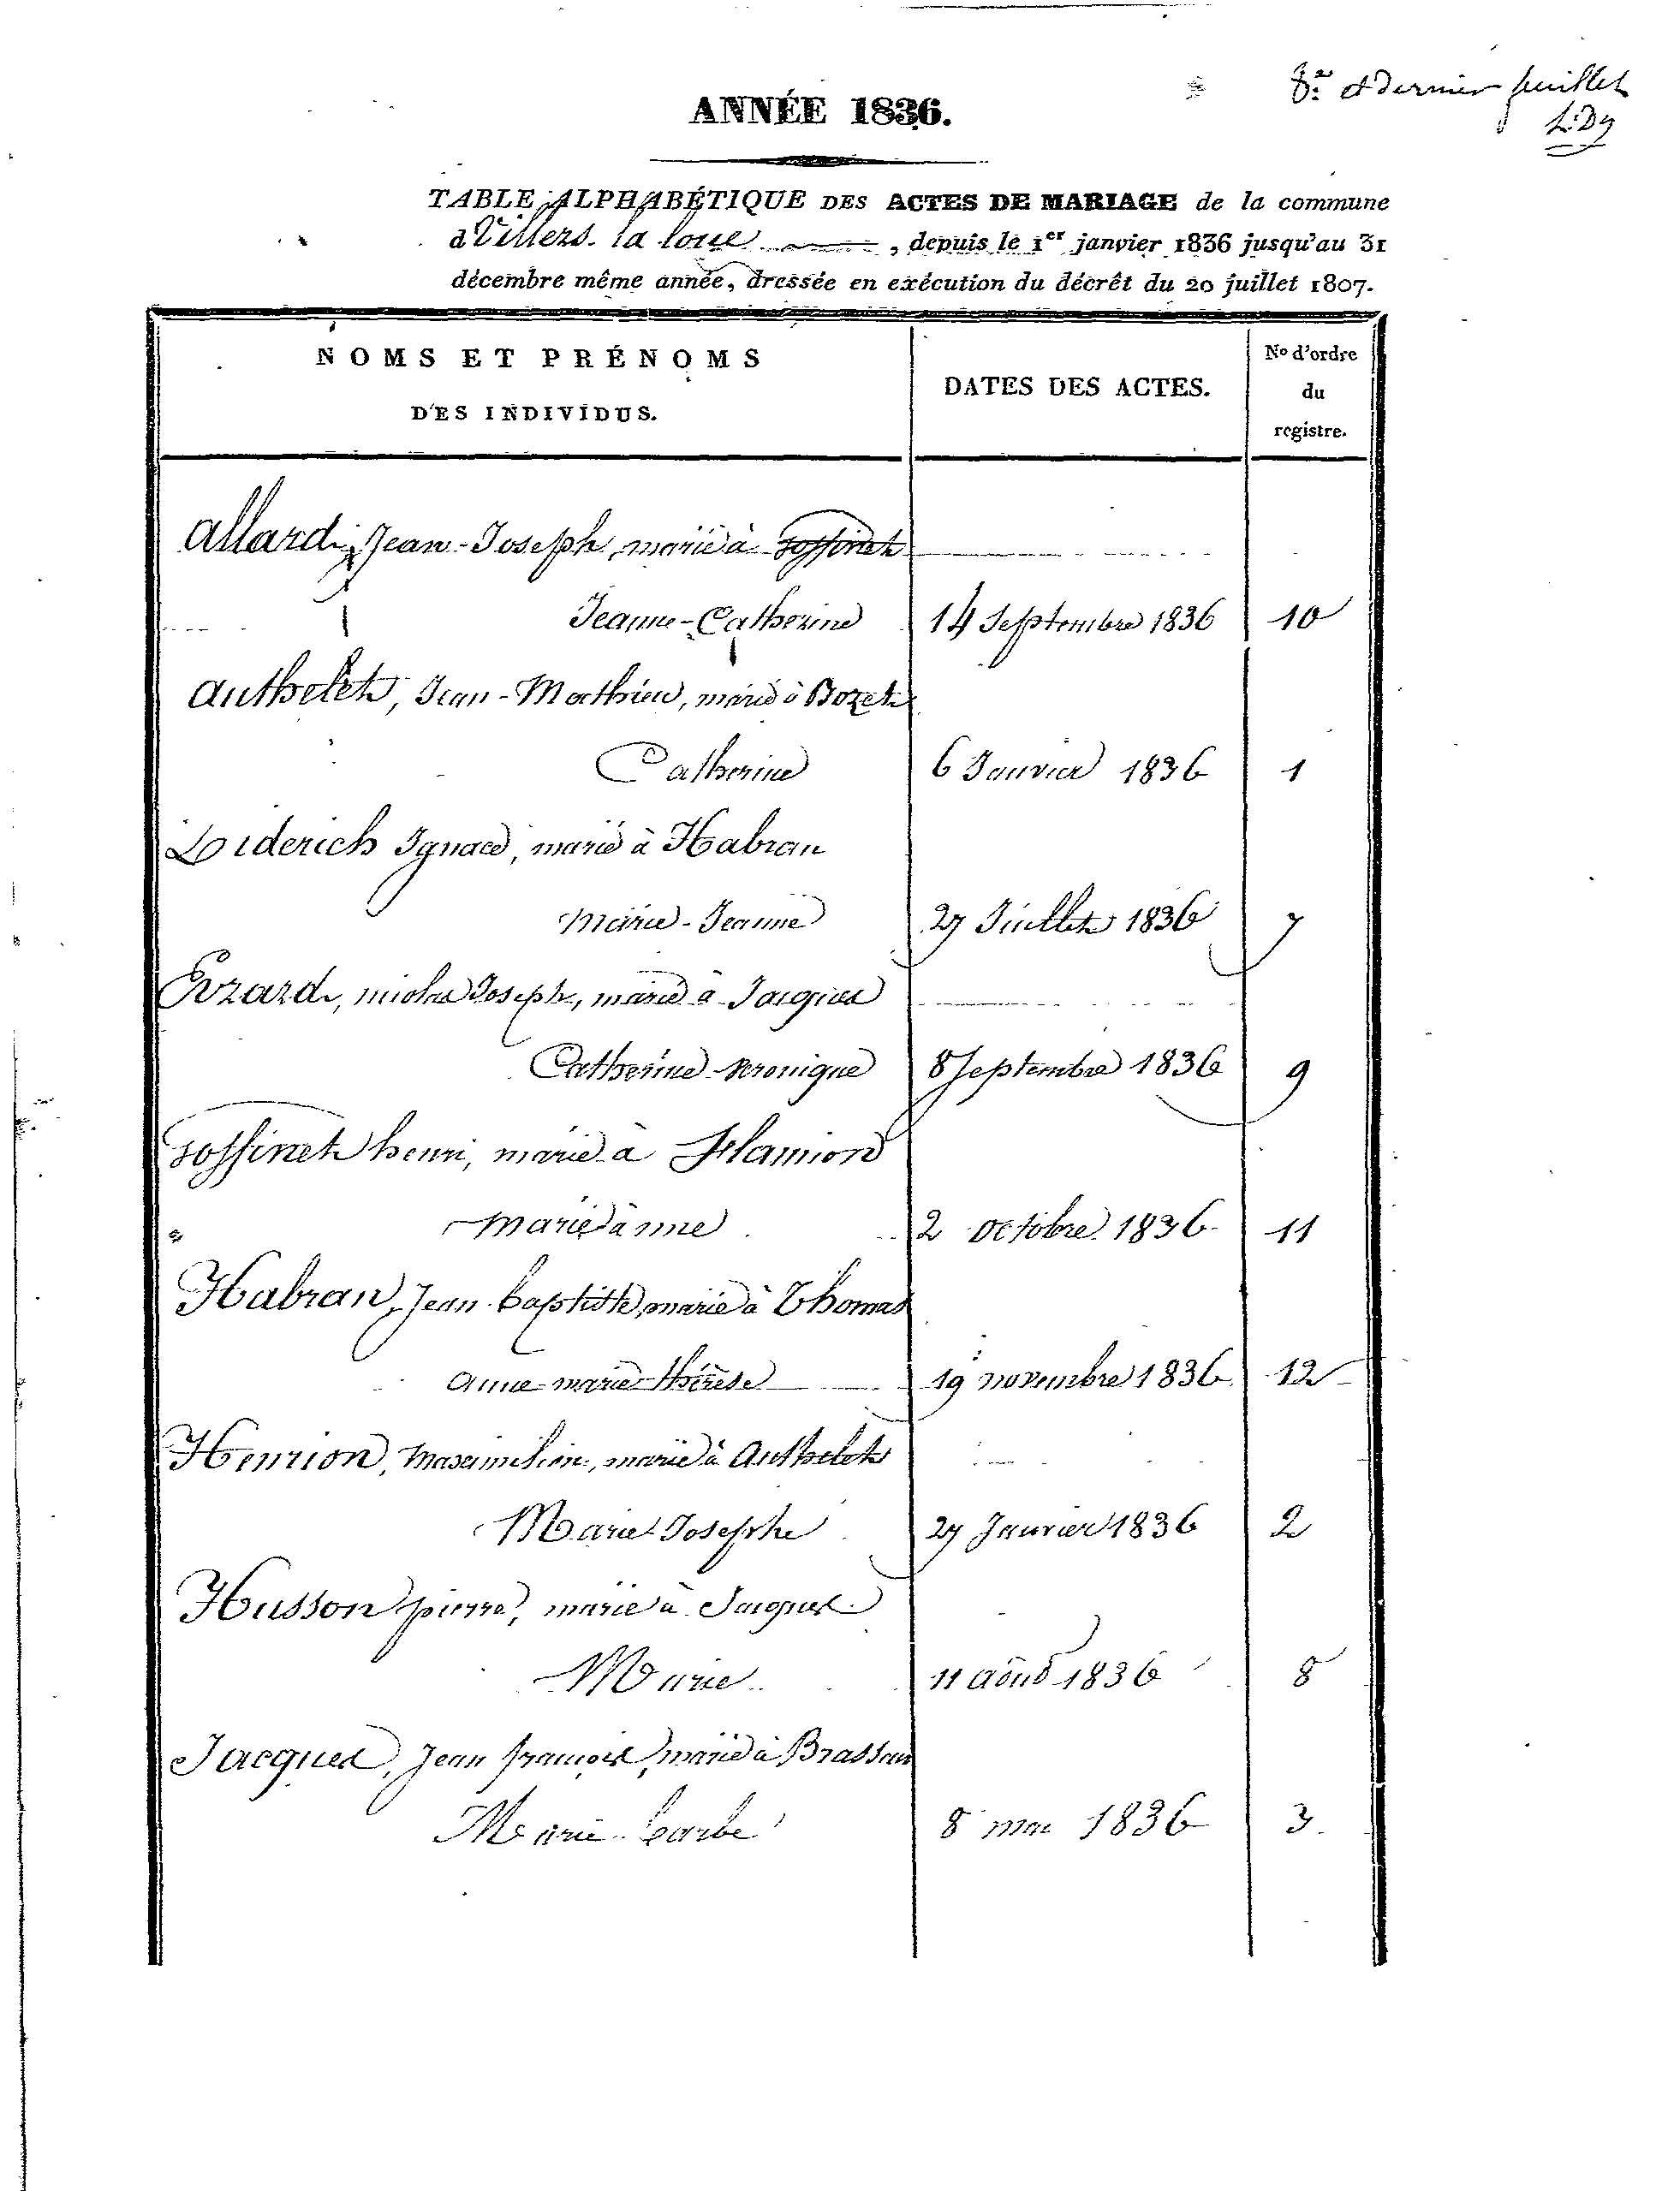 8e et dernier feuillet
L.Dy
ANNÉE 1836.
TABLE ALPHABÉTIQUE DES ACTES DE MARIAGE de la commune
d Villers-la-loue, depuis le 1er janvier 1836 jusqu'au 31
décembre même année, dressée en exécution du décrêt du 20 juillet 1807.
NOMS ET PRÉNOMS
DES INDIVIDUS.
DATES DES ACTES.
No d'ordre
du
registre.
Allard, Jean-Joseph, marié à Goffinet
Jeanne-Catherine 14 Septembre 1836 10
Authelet, Jean-Mathieu, marié à Bozet
Catherine 6 Janvier 1836 1
Diderich Ignace, marié à Habran
Marie-Jeanne 27 Juillet 1836 7
Evrard, nicolas Joseph, marié à Jacques
Catherine Veronique 8 Septembre 1836 9
Goffinet henri, marié à Flamion
Marie anne 2 octobre 1836 11
Habran, Jean baptiste, marié à Thomas
Anne-marie-thérèse 19 novembre 1836 12
Henrion, Maximilien, marié à Authelet
Marie-Josephe 27 Janvier 1836 2
Husson pierre, marié à Jacques
Marie 11 août 1836 8
Jacques, Jean françois, marié à
Marie-barbe 8 mai 1836 3